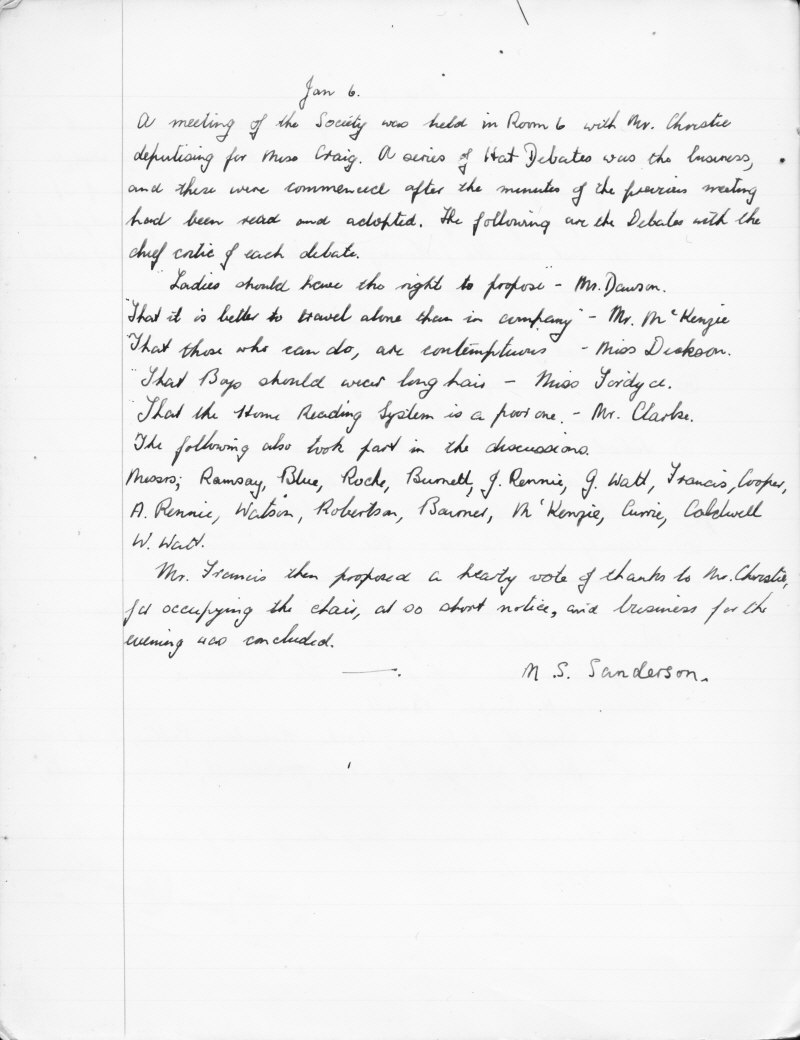 Jan 6.
A meeting of the Society was held in Room 6 with Mr. Christie
deputising for Miss Craig. A series of Hat Debates was the business,
and these were commenced after the minutes of the previous meeting
had been read and adopted. The following are the Debates with the
chief critic of each debate.
"Ladies should have the right to propose" - Mr. Dawson.
"That it is better to travel alone than in company" - Mr. McKenzie
"That those who can do, are contemptuous - Miss Dickson.
"That Boys should wear long hair - Miss
"That the Home Reading System is a poor one. - Mr. Clarke.
The following also took part in the discussions.
Messrs; Ramsay, Blue, Roche, Burnett, J. Rennie, G. Watt, Francis, Cooper,
A. Rennie, Watson, Robertson, McKenzie, Currie, Caldwell
W. Watt.
Mr. Francis then proposed a hearty vote of thanks to Mr. Christie,
for occupying the chair, at so short notice, and business for the
evening was concluded.
M. S. Sanderson.